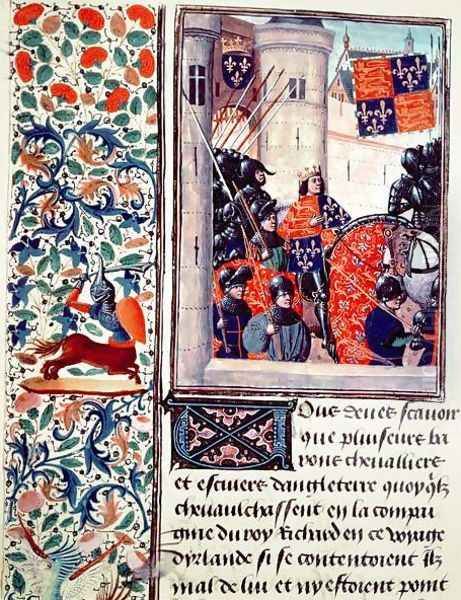 Vous deues scauoir
que pluiseurs ba
rons cheualliers
et escuiers dangleterre quoy qlz
cheuaulchassent en la compai
gnie du roy Richard en ce voyage
dyrlande si se contentoient ilz
mal de lui et ny estoient point